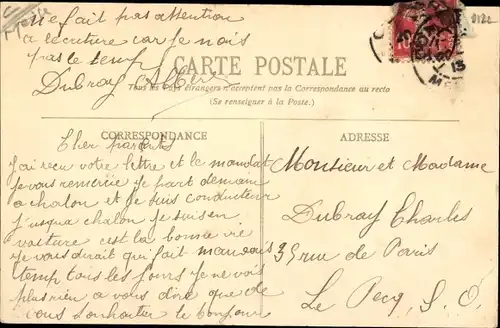 ne fait pas attention
a lecriture car je nais
pas le temps
Dubray Albert
CARTE POSTALE
Tous les pays étrangers n'acceptent pas la Correspondance au recto
(Se renseigner à la Poste.)
CORRESPONDANCE
Cher parents
j'ai recu votre lettre et le mandat
je vous remercie je part demain
a chalon et je suis conducteur
jusqua chalon je suis en
voiture cest la bonne vie
je vous dirait qui fait mauvais
temp tous les jours je ne vois
plus rien a vous dire que de
vous souhaiter le bonjour
ADRESSE
Monsieur et Madame
Dubray Charles
39 rue de Paris
Le Pecq, S. O.